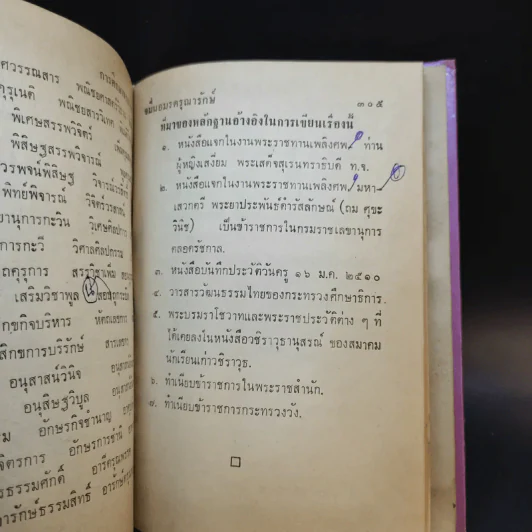 ศวรรณสาร
คุรุเนติ พณิชยสารวิเทศ
พิเศษสรรพวิจิตร์
พิสิษฐสรรพวิจารณ์
วรพจน์พิสิษฐ วิจารณ์วรกิจ
พิทย์พิจารณ์
ยานุการกะวิน วิเศษศุภการ
การกะวี วิศาลศิลปกรรม
ถคุรุการ
เสริมวิชาพูล
กขกิจบริหาร หัตถเลขการ
สิกขการบริรักษ์
อนุสาสน์วินิจ
อนุสิษฐวิบูล
ม อักษรกิจชำนาญ
จิตรการ อักษรการชำนิ
รธรรมศักดิ์ อารีดรุณพรรค
ารักษ์ธรรมสิทธิ์
จมื่นอมรดรุณารักษ์ ๓๐๕
ที่มาของหลักฐานอ้างอิงในการเขียนเรื่องนี้
๑. หนังสือแจกในงานพระราชทานเพลิงศพ ท่าน
ผู้หญิงเสงี่ยม พระเสด็จสุเรนทราธิบดี ท.จ.
๒. หนังสือแจกในงานพระราชทานเพลิงศพ มหา
เสวกตรี พระยาประพันธ์ดำรัสลักษณ์ (ถม ศุขะ
วินิช) เป็นข้าราชการในกรมราชเลขานุการ
ตลอดรัชกาล.
๓. หนังสือบันทึกประวัติวันครู ๑๖ ม.ค. ๒๕๑๐
๔. วารสารวัฒนธรรมไทยของกระทรวงศึกษาธิการ.
๕. พระบรมราโชวาทและพระราชประวัติต่าง ๆ ที่
ได้เคยลงในหนังสือวชิราวุธานุสรณ์ ของสมาคม
นักเรียนเก่าวชิราวุธ.
๖. ทำเนียบข้าราชการในพระราชสำนัก.
๗. ทำเนียบข้าราชการกระทรวงวัง.